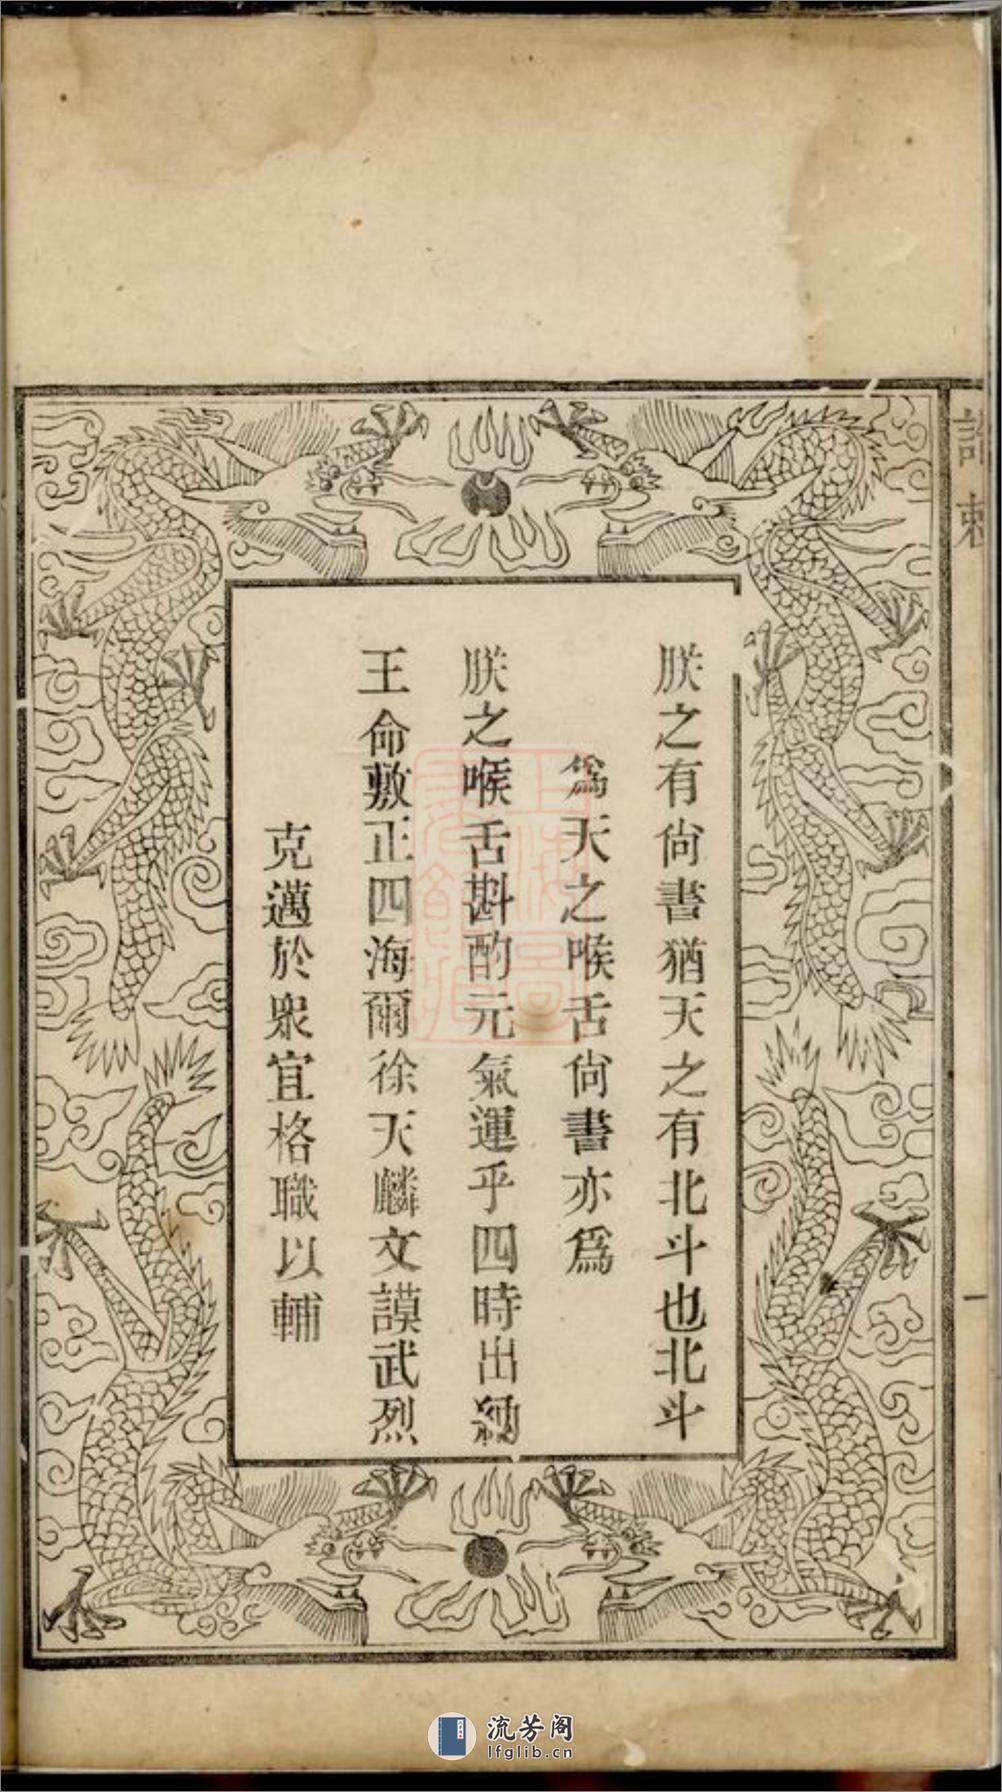 誥敕
一
朕之有尙書猶天之有北斗也北斗
爲天之喉舌尙書亦爲
朕之喉舌斟酌元氣運乎四時出納
王命敷正四海爾徐天麟文謨武烈
克邁於衆宜格職以輔
流芳阁
lfglib.cn